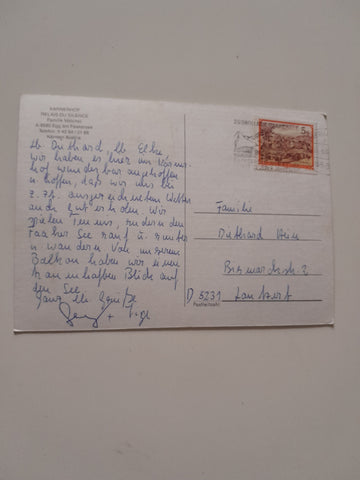 KARNERHOF
RELAIS DU SILENCE
Familie Melcher
A-9580 Egg am Faakersee
Telefon
Kärnten Austria
5 S
Lb. Diethard, lb. Elke,
wir haben es hier am Karner-
hof wunderbar angetroffen
u. hoffen, daß wir uns bei
z. Zt. ausgezeichnetem Wetter
auch gut erholen. Wir
spielen Tennis, rudern den
Faaker See rauf u. runter
u. wandern. Von unserem
Balkon haben wir einen
traumhaften Blick auf
den See.
Ganz lb. Grüße
+
Familie
Diethard
Bismarckstr. 2
D 5231
Postleitzahl